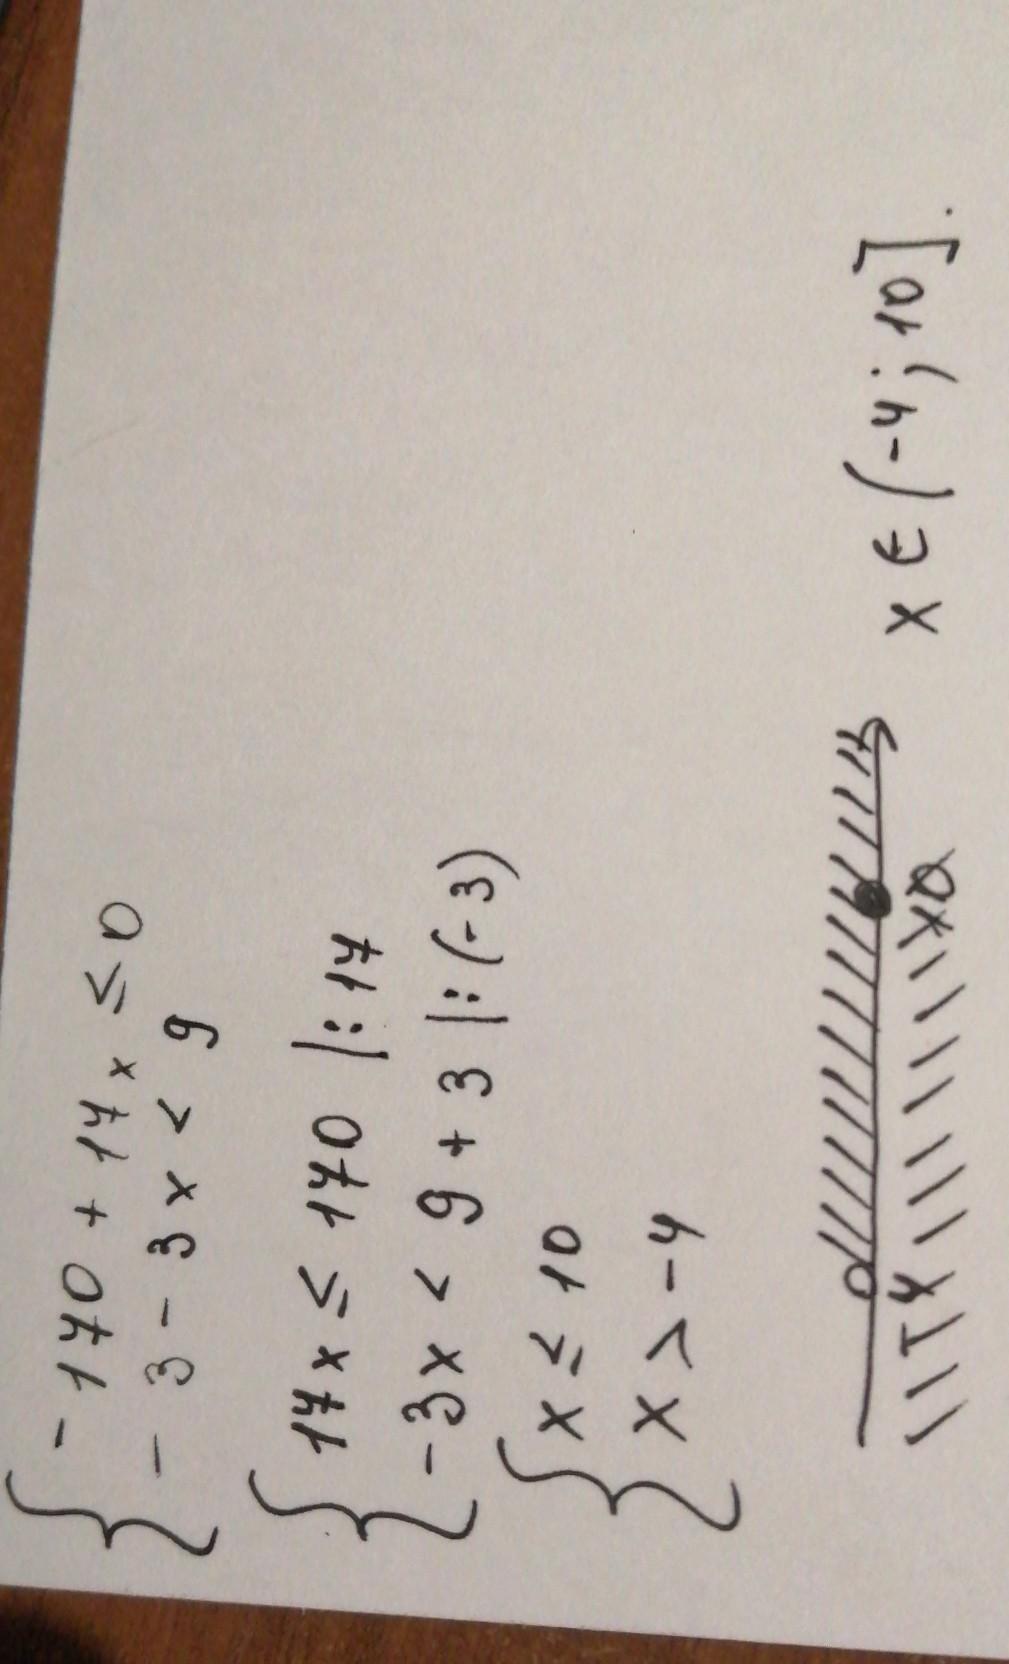 - 170 + 17x ≤ 0
- 3 - 3x < 9
17x ≤ 170 |: 17
-3x < 9 + 3 |: (-3)
x ≤ 10
x > -4
-4 10 x ∈ (-4; 10].